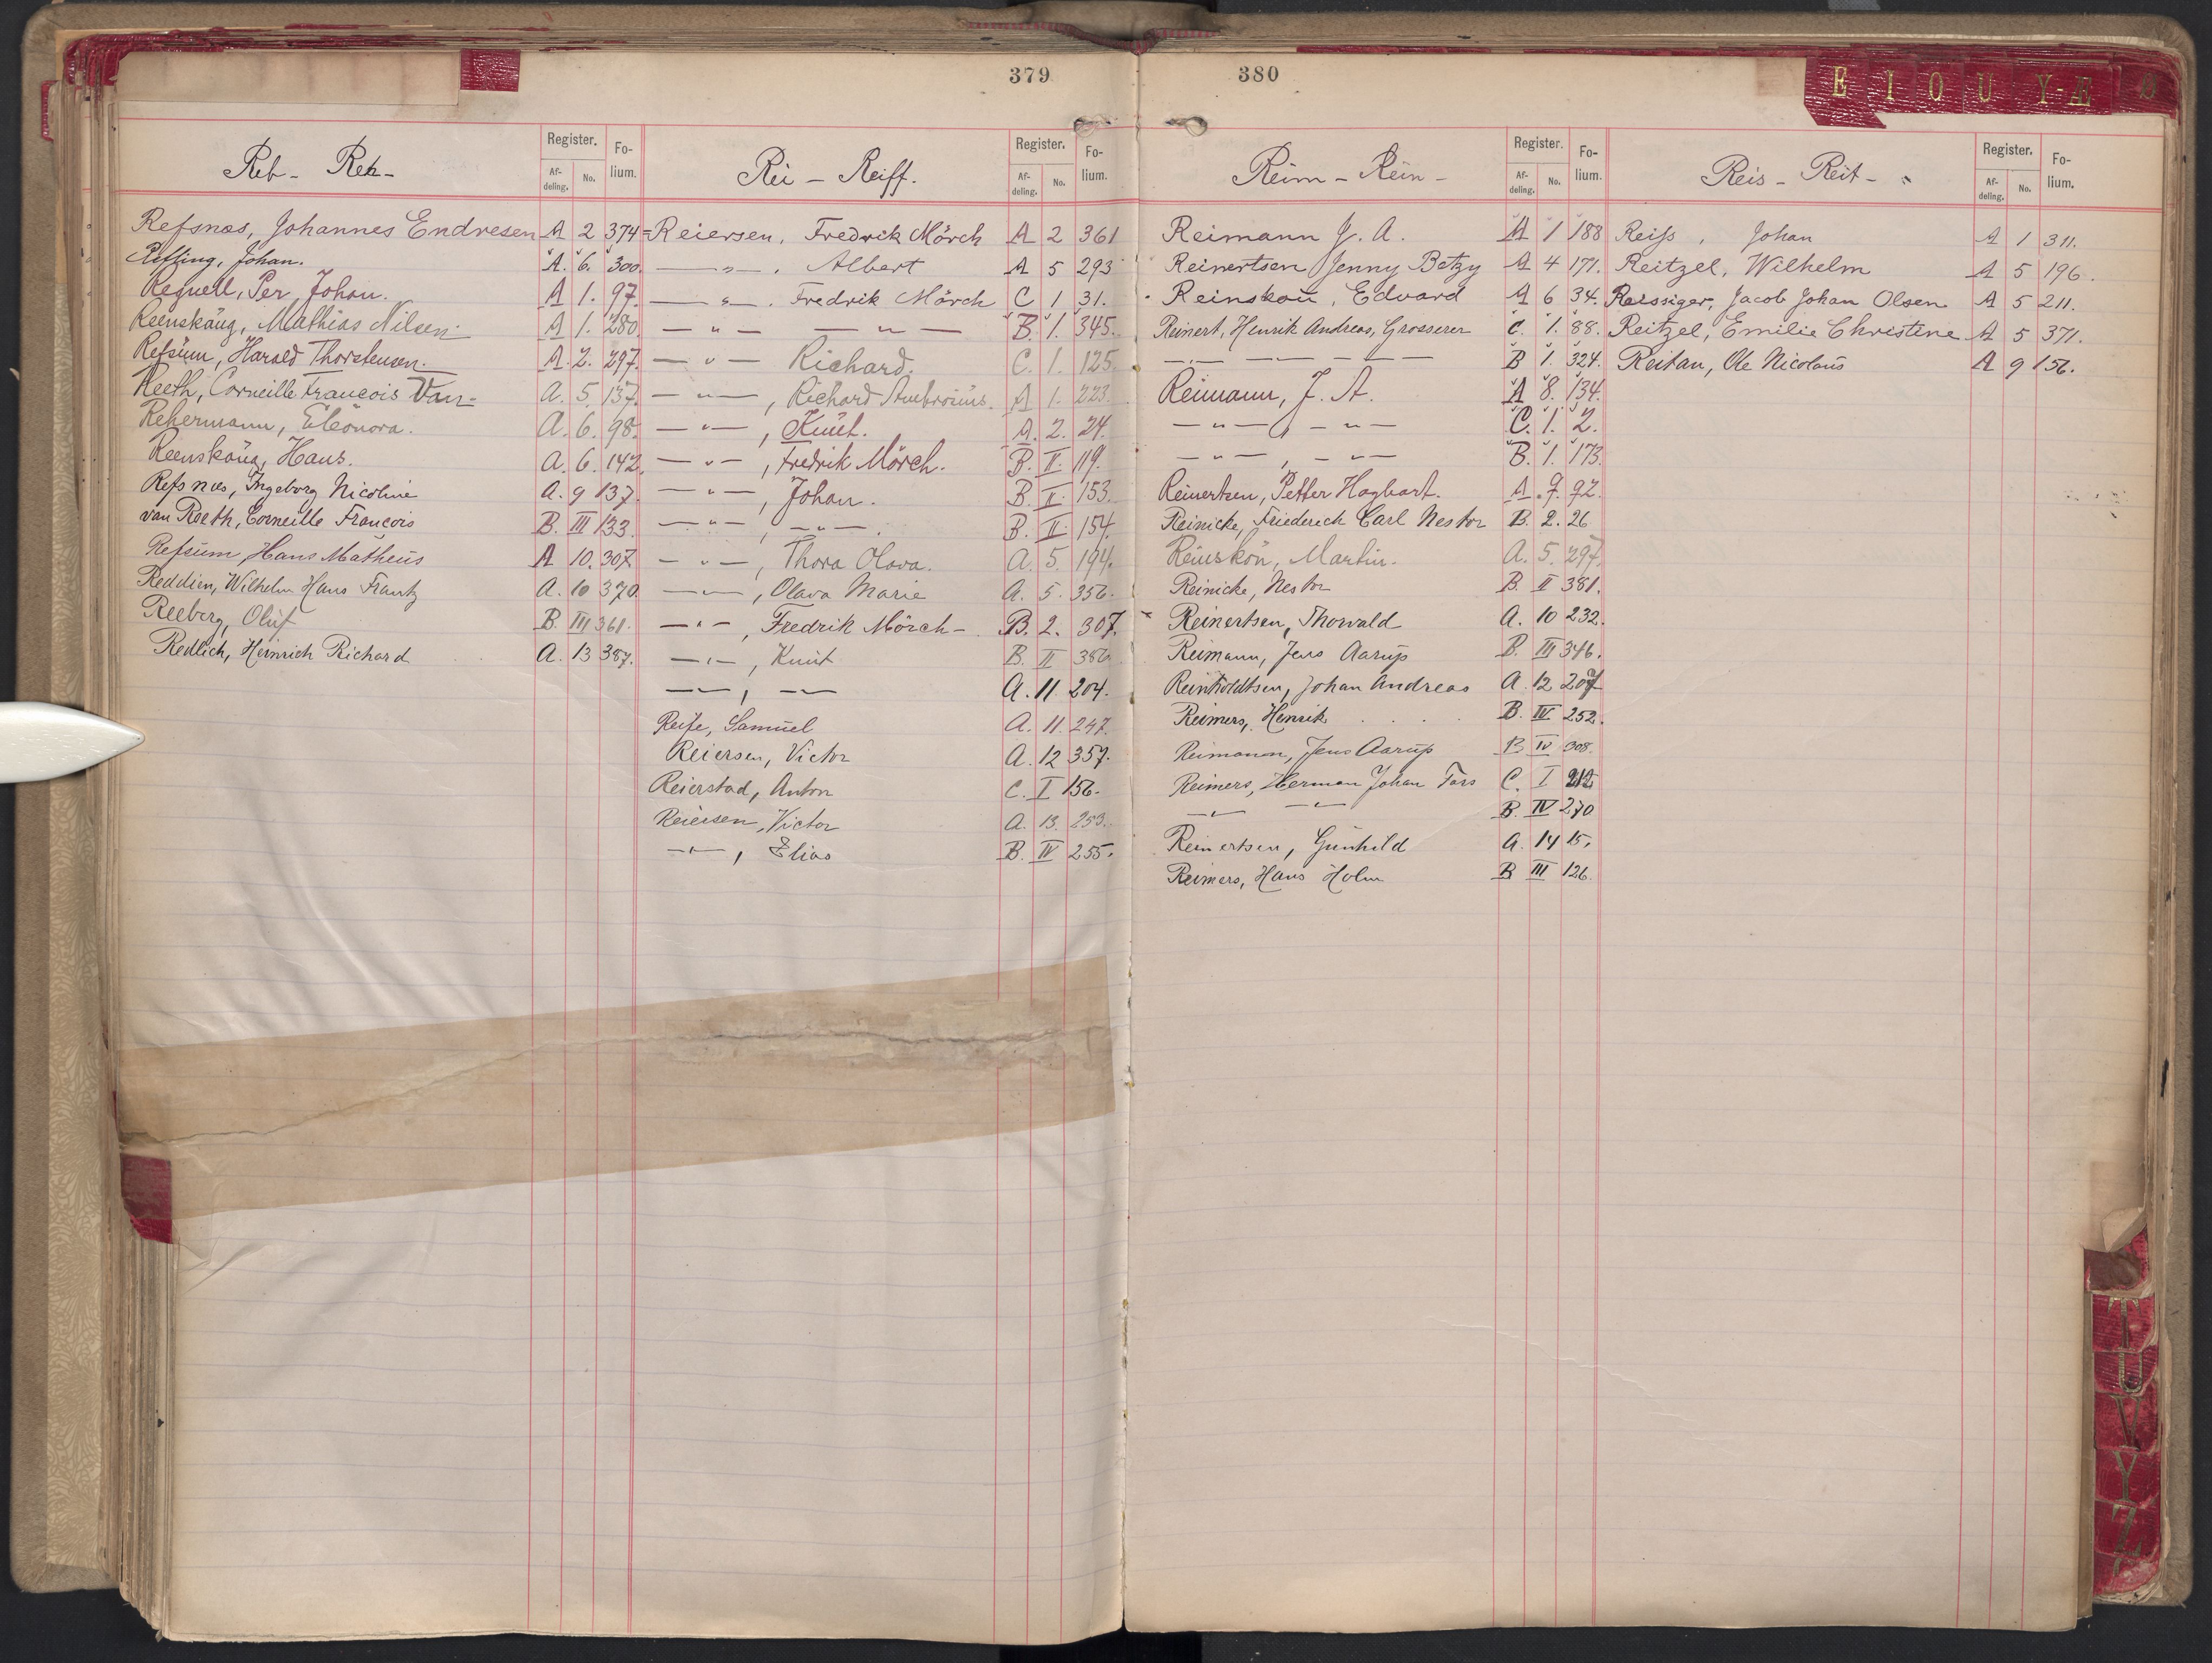 379
Reb - Reh -
Register.
Afdeling.
No.
Folium.
Refsnæs, Johannes Endresen A 2 374
Refling, Johan. A. 6. 300.
Regnell, Per Johan. A 1. 97.
Reenskaug, Mathias Nilsen A 1. 280
Refsum, Harald Thorstensen. A. 2. 297.
Reeth, Corneille Francois Van - A. 5. 137.
Rehermann, Eleonora. A. 6. 98.
Reenskaug, Hans. A. 6. 142.
Refsnæs, Ingeborg Nicoline A. 9 137.
van Reeth, Corneille Francois B. III 133.
Refsum, Hans Matheus A 10. 307
Reddien, Wilhelm Hans Frantz A. 10 370
Reeberg, Oluf B. III 361.
Redlich, Heinrich Richard A. 13 387.
Rei - Reiff.
Register.
Afdeling.
No.
Folium.
Reiersen, Fredrik Mörch A 2 361
— " — , Albert A 5 293
— " — , Fredrik Mörch C 1 31.
— " — — " — B. 1. 345.
— " — Richard. C. 1. 125.
— " — , Richard Ambrosius. A 1. 223.
— " — , Knut. A. 2. 24.
— " — , Fredrik Mörch. B. II. 119.
— " — , Johan. B. II. 153.
— " — , — " — . B. II. 154.
— " — , Thora Olava. A. 5. 194.
— " — , Olava Marie A. 5. 356.
— " — , Fredrik Mörch - B. 2. 307.
— " — , Knut B. II 386
— " — , — " — A. 11. 204.
Reife, Samuel A. 11. 247.
Reiersen, Victor A. 12 357.
Reierstad, Anton C. I 156.
Reiersen, Victor A. 13. 253.
— " — , Elias B. IV 255.
380
E I O U Y-Æ Ø
Reim - Rein -
Register.
Afdeling.
No.
Folium.
Reimann J. A. A 1 188
Reinertsen Jenny Betzy A 4 171.
Reinskou, Edvard A 6 34.
Reinert, Henrik Andreas, Grosserer C. 1. 88.
— " — — " — — " — B 1. 324.
Reimann, J. A. A 8. 134.
— " — , — " — C. 1. 2.
— " — , — " — B. 1. 173.
Reinertsen, Petter Hagbart. A. 9. 92.
Reinicke, Friederich Carl Nestor B. 2. 26
Reinskou, Martin. A. 5. 297.
Reinicke, Nestor B. II 381.
Reinertsen, Thorvald A. 10 232.
Reimann, Jens Aarup B. III 346.
Reinholdtsen, Johan Andreas A. 12 207
Reimers, Henrik B. IV 252.
Reimann, Jens Aarup B IV 308.
Reimers, Herman Johan Foss C. I 212
— " — — " — B. IV 270
Reinertsen, Gunhild A. 14 15.
Reimers, Hans Holm B III 126.
Reis - Reit -
Register.
Afdeling.
No.
Folium.
Reiss, Johan A 1 311.
Reitzel, Wilhelm A 5 196.
Reissiger, Jacob Johan Olsen A 5 211.
Reitzel, Emilie Christine A 5 371.
Reitan, Ole Nicolaus A 9 156.
T
U
V
Y
Z